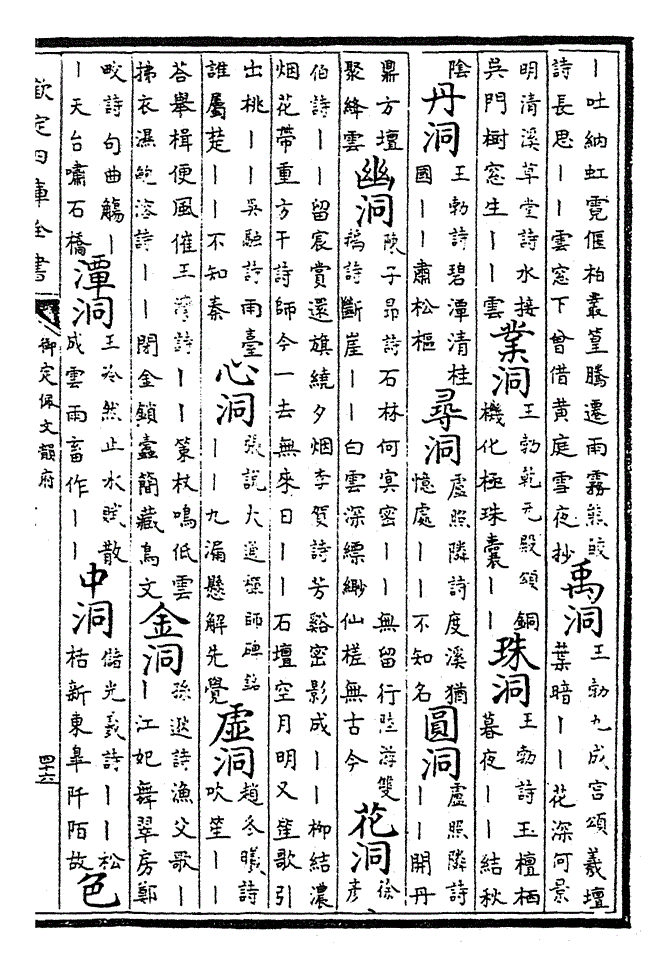 ｜吐納虹霓偃柏叢篁騰遷雨霧熊皎
詩長思｜｜雲窓下曾借黄庭雪夜抄
禹洞
王勃九成宫頌羲壇
葉暗｜｜花深何景
明清溪草堂詩水接
吳門樹窓生｜｜雲
業洞
王勃乾元殿頌銅
機化極珠囊｜｜
珠洞
王勃詩玉檀栖
暮夜｜｜結秋
陰
丹洞
王勃詩碧潭清桂
國｜｜肅松樞
尋洞
盧照隣詩度溪猶
憶處｜｜不知名
圓洞
盧照隣詩
｜｜開丹
鼎方壇
聚絳雲
幽洞
陳子昂詩石林何冥密｜｜無留行陸游雙
鵝詩斷崖｜｜白雲深縹緲仙槎無古今
花洞
徐
彦
伯詩｜｜留宸賞還旗繞夕烟李賀詩芳谿密影成｜｜柳結濃
烟花帶重方干詩師今一去無來日｜｜石壇空月明又笙歌引
出桃｜｜吳融詩雨臺
誰屬楚｜｜不知秦
心洞
張說大通禪師碑銘
｜｜九漏懸解先覺
虛洞
趙冬曦詩
吹笙｜｜
荅舉楫便風催王灣詩｜｜策杖鳴低雲
拂衣濕鮑溶詩｜｜閉金鎖蠧簡藏鳥文
金洞
孫逖詩漁父歌｜
｜江妃舞翠房鄭
畋詩句曲觴｜
｜天台嘯石橋
潭洞
王泠然止水賦散
成雲雨畜作｜｜
中洞
儲光羲詩｜｜松
桔新東臯阡陌故
色
欽定四庫全書
御定佩文韻府
四十六